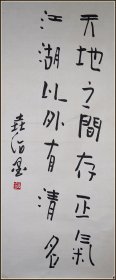 天地之間存正氣
江湖以外有清名